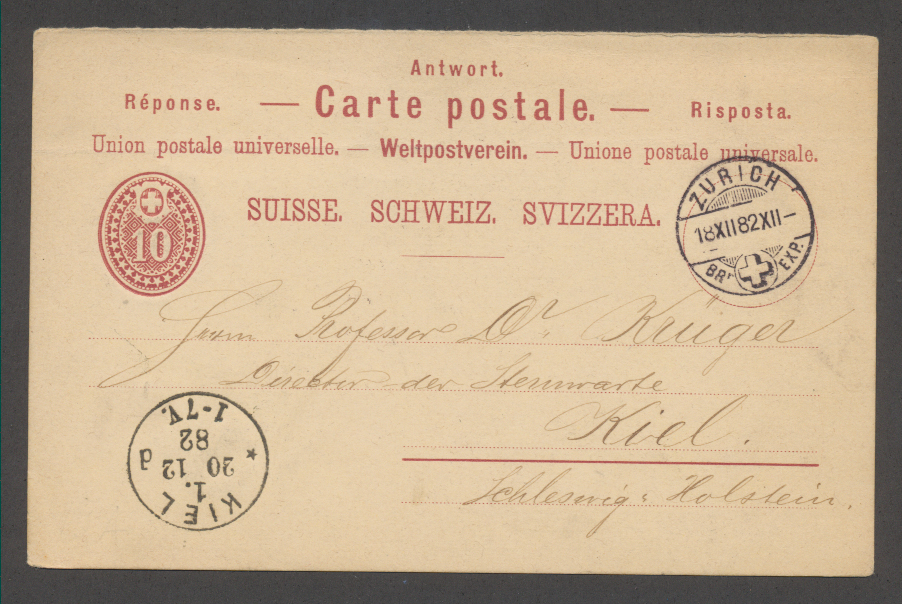 Antwort.
Réponse. — Carte postale. — Risposta.
Union postale universelle. — Weltpostverein. — Unione postale universale.
SUISSE. SCHWEIZ. SVIZZERA.
10
ZÜRICH
18XII82XII–
BRf. EXP.
Herrn Professor Dr. Krüger
Director der Sternwarte
Kiel.
Schleswig-Holstein.
KIEL
1.
20 12
82
1-7V.
* d